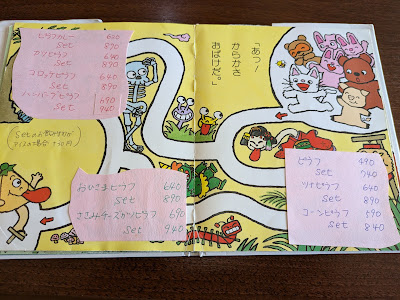 ピラフカレー 620
Set 890
カツピラフ 640
Set 890
コロッケピラフ 640
Set 890
ハンバーグピラフ 690
Set 940
Setのお飲みものが
アイスの場合 +50円
「あっ！
からかさ
おばけだ。」
おひさまピラフ 640
Set 890
ささみチーズカツピラフ 690
Set 940
ピラフ 490
Set 740
ツナピラフ 640
Set 890
コーンピラフ 590
Set 840